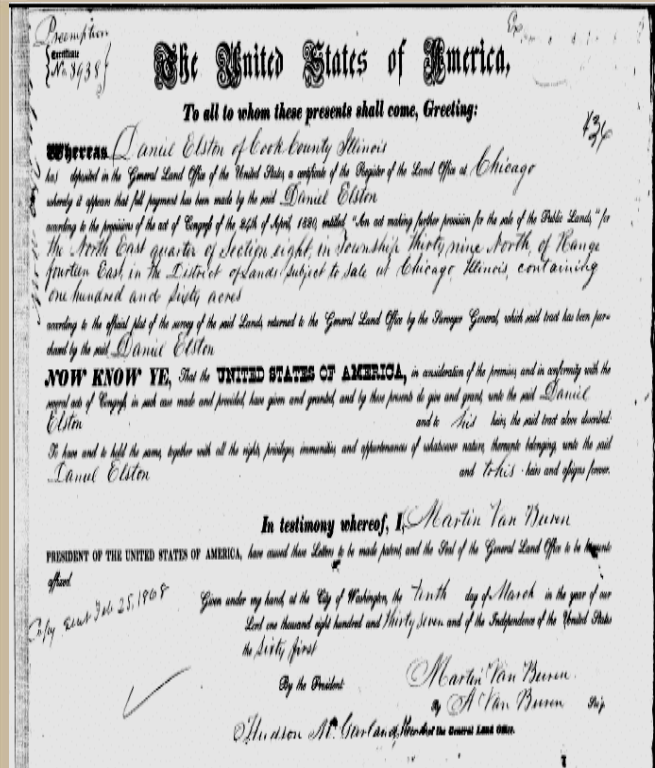 Preemption
Certificate
No. 3938
The United States of America,
To all to whom these presents shall come, Greeting:
436
Whereas Daniel Elston of Cook County Illinois
has deposited in the General Land Office of the United States, a certificate of the Register of the Land Office at Chicago
whereby it appears that full payment has been made by the said Daniel Elston
according to the provisions of the act of Congress of the 24th of April, 1820, entitled "An act making further provision for the sale of the Public Lands," for
the North East quarter of Section eight, in Township thirty nine North, of Range
fourteen East, in the District of Lands subject to sale at Chicago, Illinois, containing
one hundred and sixty acres
according to the official plat of the survey of the said Lands, returned to the General Land Office by the Surveyor General, which said tract has been pur-
chased by the said Daniel Elston
NOW KNOW YE, That the UNITED STATES OF AMERICA, in consideration of the premises, and in conformity with the
several acts of Congress, in such case made and provided, have given and granted, and by these presents do give and grant, unto the said Daniel
Elston and to his heirs, the said tract above described:
To have and to hold the same, together with all the rights, privileges, immunities, and appurtenances of whatsoever nature, thereunto belonging, unto the said
Daniel Elston and to his heirs and assigns forever.
In testimony whereof, I, Martin Van Buren
PRESIDENT OF THE UNITED STATES OF AMERICA, have caused these Letters to be made patent, and the Seal of the General Land Office to be hereunto
affixed.
Copy Feb 25, 1868
Given under my hand, at the City of Washington, the tenth day of March in the year of our
Lord one thousand eight hundred and thirty seven and of the Independence of the United States
the sixty first
By the President: Martin Van Buren
By A Van Buren Sec'y.
Hudson M. Garland, Recorder of the General Land Office.